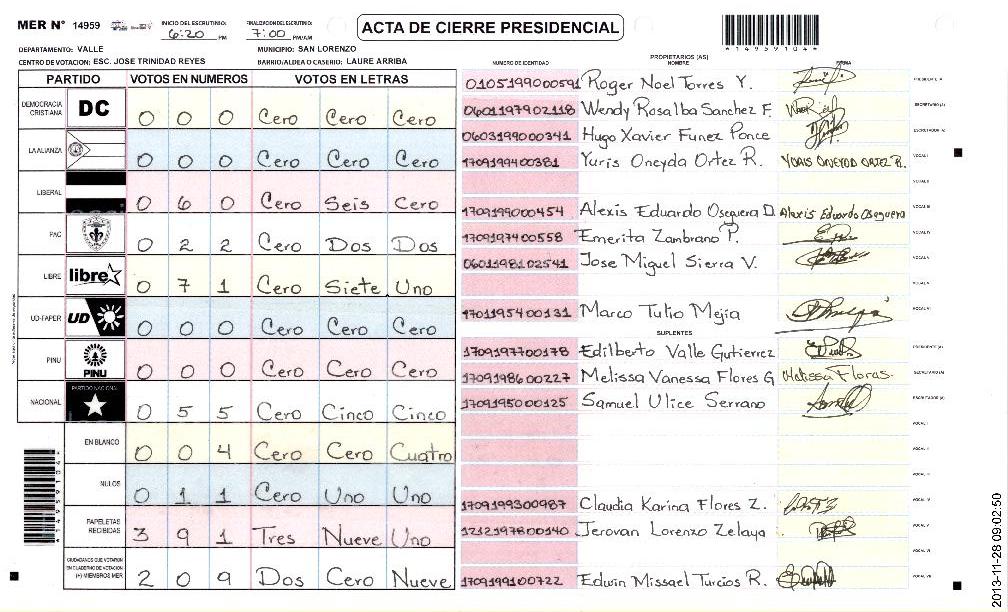 MER N° 14959
INICIO DEL ESCRUTINIO: 6:20 PM
FINALIZACION DEL ESCRUTINIO: 7:00 PM/AM
ACTA DE CIERRE PRESIDENCIAL
*149591041*
DEPARTAMENTO: VALLE
MUNICIPIO: SAN LORENZO
CENTRO DE VOTACION: ESC. JOSE TRINIDAD REYES
BARRIO/ALDEA O CASERIO: LAURE ARRIBA
PARTIDO VOTOS EN NUMEROS VOTOS EN LETRAS
DEMOCRACIA CRISTIANA DC 0 0 0 Cero Cero Cero
LA ALIANZA 0 0 0 Cero Cero Cero
LIBERAL 0 6 0 Cero Seis Cero
PAC 0 2 2 Cero Dos Dos
LIBRE libre 0 7 1 Cero Siete Uno
UD-FAPER UD 0 0 0 Cero Cero Cero
PINU PINU 0 0 0 Cero Cero Cero
NACIONAL PARTIDO NACIONAL 0 5 5 Cero Cinco Cinco
EN BLANCO 0 0 4 Cero Cero Cuatro
NULOS 0 1 1 Cero Uno Uno
PAPELETAS RECIBIDAS 3 9 1 Tres Nueve Uno
CIUDADANOS QUE VOTARON EN CUADERNO DE VOTACION (+) MIEMBROS MER 2 0 9 Dos Cero Nueve
PROPIETARIOS (AS)
NUMERO DE IDENTIDAD NOMBRE FIRMA
0105199000591 Roger Noel Torres Y. PRESIDENTE (A)
0601197902118 Wendy Rosalba Sanchez F. SECRETARIO (A)
0603199000341 Hugo Xavier Funez Ponce ESCRUTADOR (A)
1709199400381 Yuris Oneyda Ortez R. YURIS ONEYDA ORTEZ R. VOCAL I
VOCAL II
1709199000454 Alexis Eduardo Oseguera D. Alexis Eduardo Oseguera VOCAL III
1709197400558 Emerita Zambrano P. VOCAL IV
0601198102541 Jose Miguel Sierra V. VOCAL V
1701195400131 Marco Tulio Mejía
SUPLENTES
1709197700178 Edilberto Valle Gutierrez PRESIDENTE (A)
1709198600227 Melissa Vanessa Flores G Melissa Floras. SECRETARIO (A)
1709195000125 Samuel Ulice Serrano ESCRUTADOR (A)
VOCAL I
VOCAL II
VOCAL III
1709199300987 Claudia Karina Flores Z. VOCAL IV
1232197800140 Jerovan Lorenzo Zelaya VOCAL V
VOCAL VI
1709199100722 Edwin Missael Turcios R. VOCAL VII
2013-11-28 09:02:50